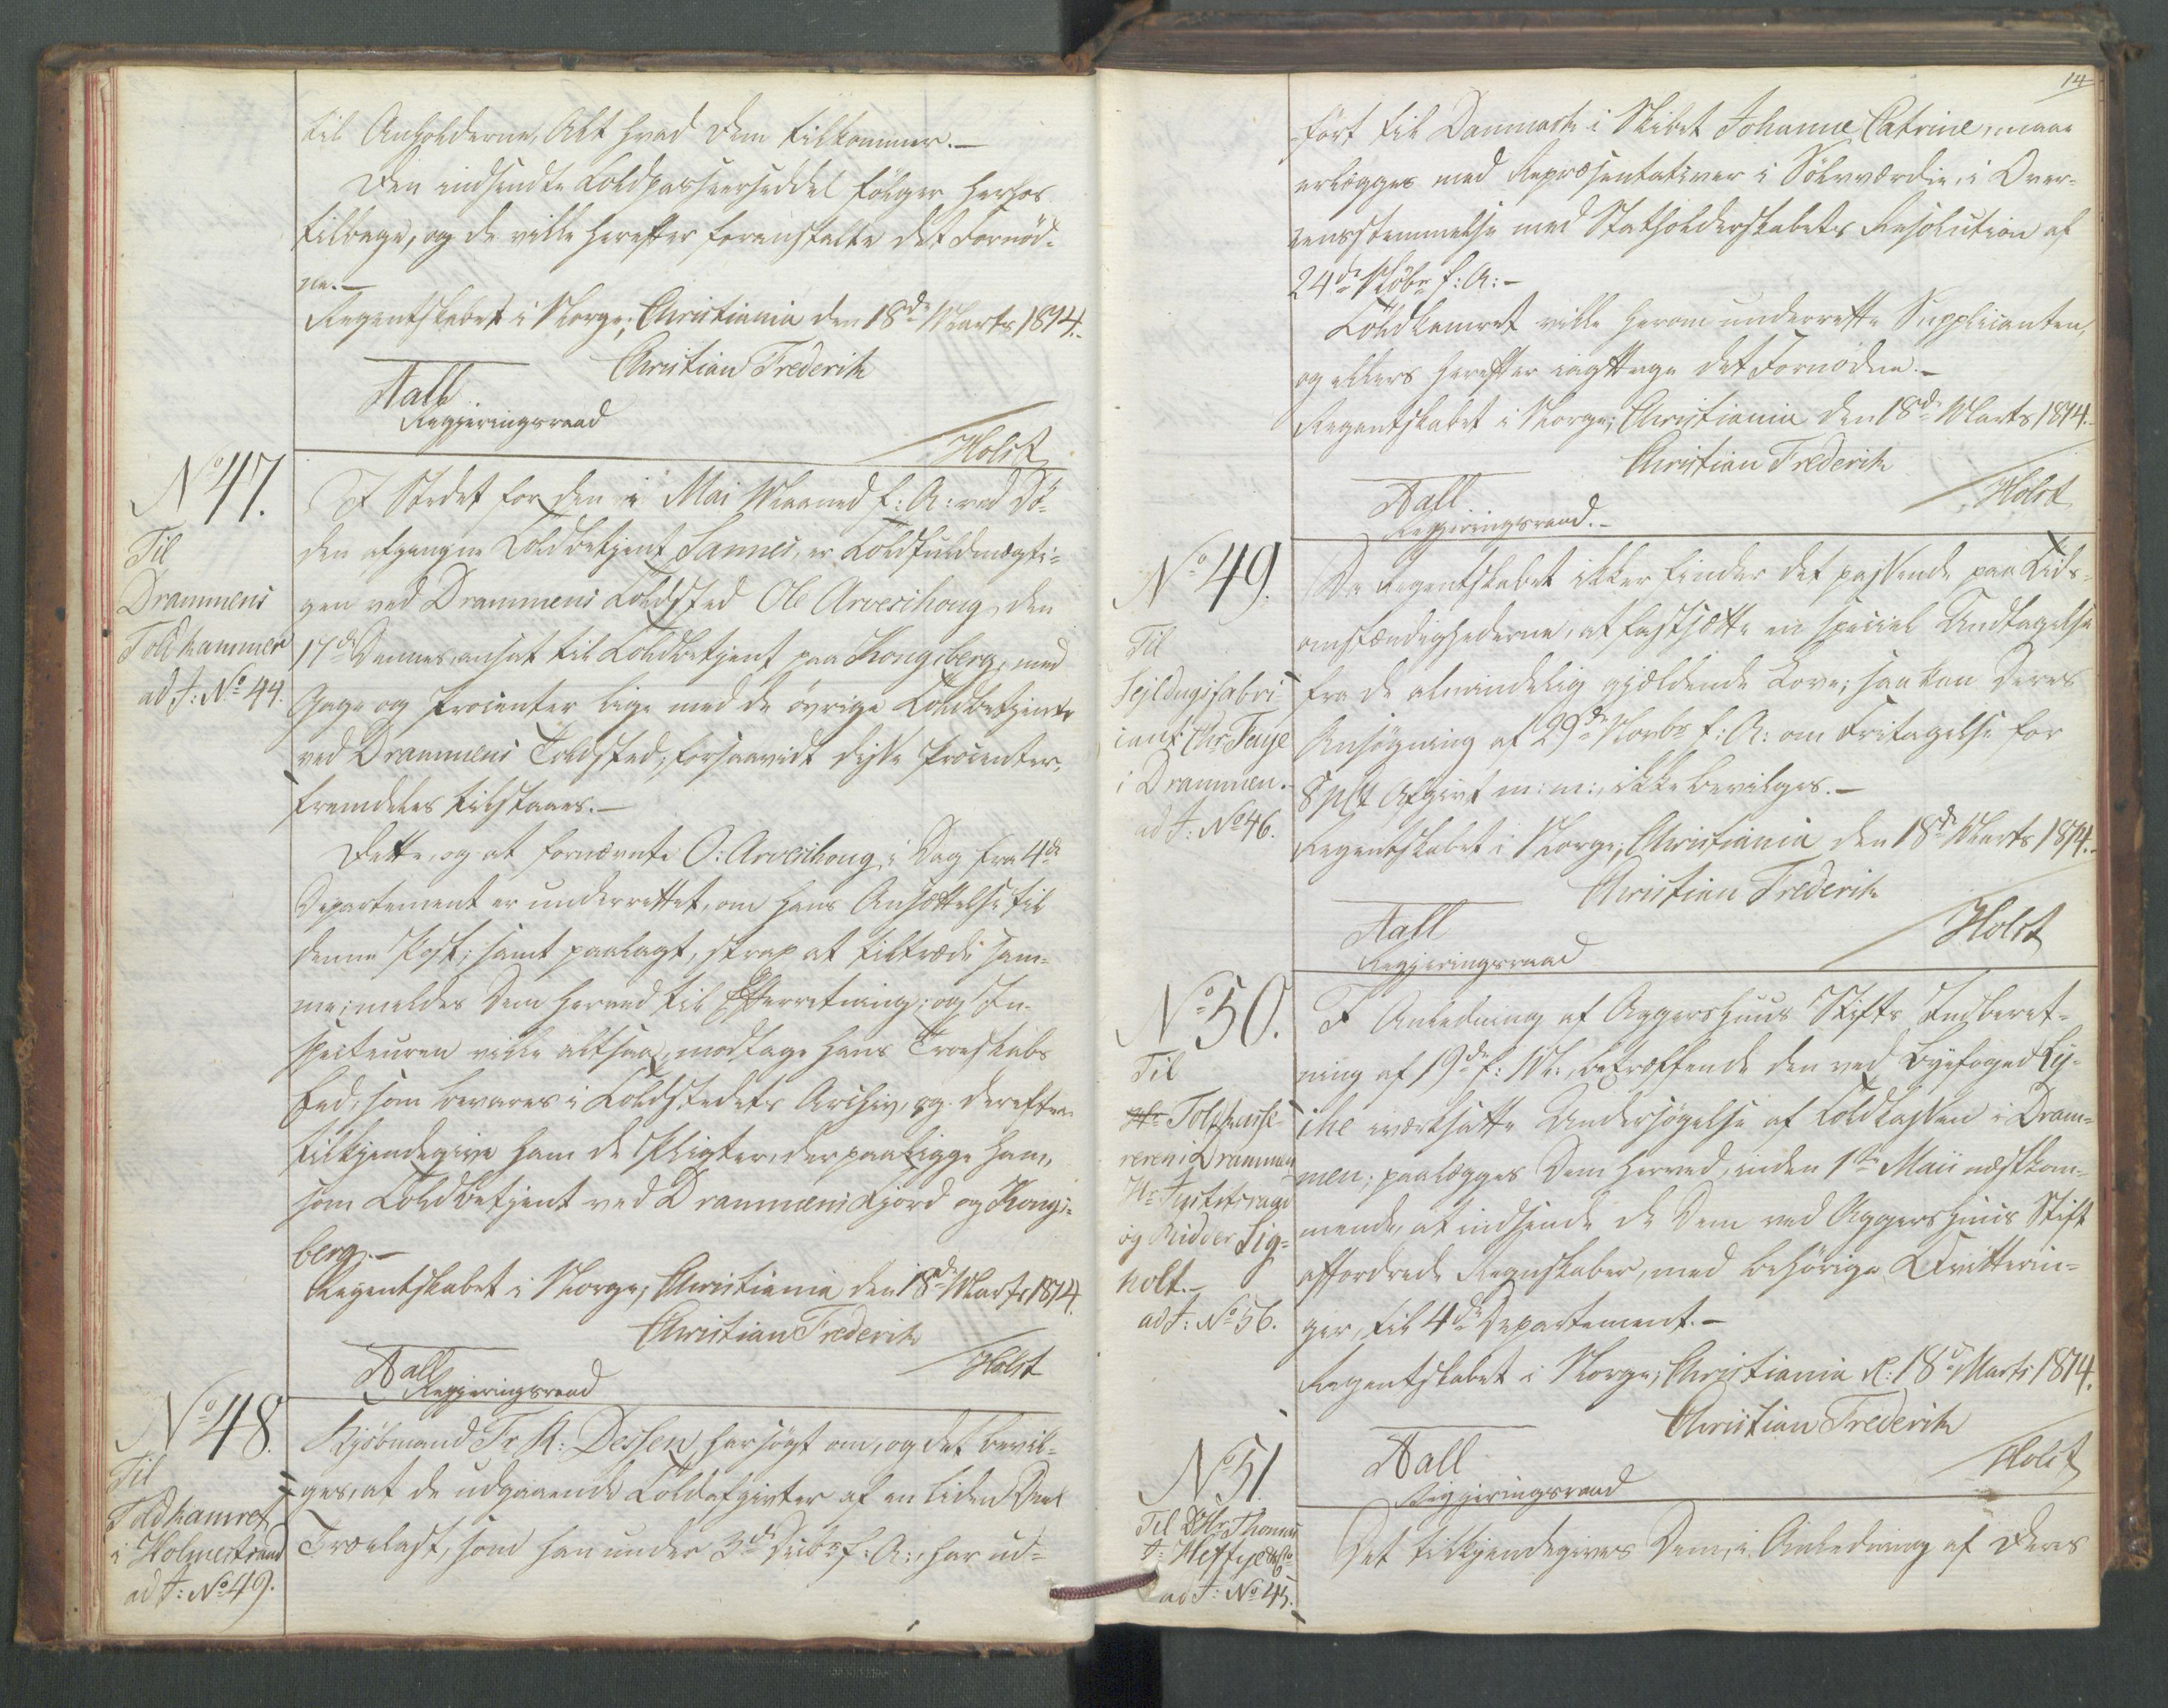 til Anholderne, Alt hvad dem tilkommer.—
Den indsendte Toldpasseerseddel følger herhos
tilbage, og de ville herefter foranstalte det Fornød-
ne.—
Regentskabet i Norge, Christiania den 18de Marts 1814.
Christian Frederik
Aall
Regjeringsraad
Holst
No 47.
Til
Drammens
Toldkammer
ad J: No 44.
I Stedet for den i Mai Maaned f: A: ved Dö-
den afgangne Toldbetjent Sannes, er Toldfuldmægti-
gen ved Drammens Toldsted Ole Arveschoug, den
17de Dennes, ansat til Toldbetjent paa Kongsberg, med
Gage og Procenter lige med de øvrige Toldbetjente
ved Drammens Toldsted, forsaavidt disse Procenter,
fremdeles tilstaaes.—
Dette, og at fornævnte O: Arveschoug, i Dag fra 4de
Departement er underrettet, om hans Ansættelse til
denne Post, samt paalagt, strax at tiltræde sam-
me; meldes Dem herved til Efterretning; og In-
specteuren ville altsaa, modtage hans Troeskabs
Eed, som bevares i Toldstedets Archiv, og derefter
tilkjendegive ham de Pligter, der paaligge ham,
som Toldbetjent ved Drammens Fjord og Kongs-
berg.—
Regentskabet i Norge, Christiania den 18de Marts 1814.
Christian Frederik
Aall
Regjeringsraad
Holst
No 48.
Til
Toldkamret
i Holmestrand
ad J: No 49.
Kjøbmand Fr. K: Dessen har søgt om, og det bevil-
ges, at de udgaaende Toldafgivter af en liden Deel
Trælast, som han under 3de Decbr f: A:, har ud-
14
ført til Danmark i Skibet Johanne Catrine, maae
erlægges med Repræsentativer i Sølvværdie, i Over-
eensstemmelse med Statholderskabets Resolution af
24de Novbr f: A:—
Toldkamret ville herom underrette Supplicanten,
og ellers herefter iagttage det Fornødne.—
Regentskabet i Norge, Christiania den 18de Marts 1814.
Christian Frederik
Aall
Regjeringsraad.—
Holst
No 49.
Til
Sejldugsfabri-
cant Chr. Faye
i Drammen.
ad J: No 46.
Da Regentskabet ikke finder det passende paa Tids-
omstændighederne, at fastsætte en speciel Undtagelse
fra de almindelig gjældende Love; saa kan Deres
Ansøgning af 29de Novbr f: A: om Fritagelse for
8 pCt Afgivt m: m:, ikke bevilges.—
Regentskabet i Norge, Christiania den 18de Marts 1814.
Christian Frederik
Aall
Regjeringsraad
Holst
No 50.
Til
Toldkasse-
reren i Drammen
Hr Justitsraad
og Ridder Lig-
holt.—
ad J: No 56.
I Anledning af Aggershuus Stifts Indberet-
ning af 19de f: M:, betræffende den ved Byefoged Ly-
che iværksatte Undersøgelse af Toldkassen i Dram-
men; paalægges Dem herved, inden 1ste Maii næstkom-
mende, at indsende de Dem ved Aggershuus Stift
affordrede Regnskaber, med behørige Qvitterin-
ger, til 4de Departement.—
Regentskabet i Norge, Christiania d: 18de Marts 1814.
Christian Frederik
Aall
Regjeringsraad
Holst
No 51.
Til Hr. Thomas
J: Heftye
ad J: No 45.
Det tilkjendegives Dem, i Anledning af Deres